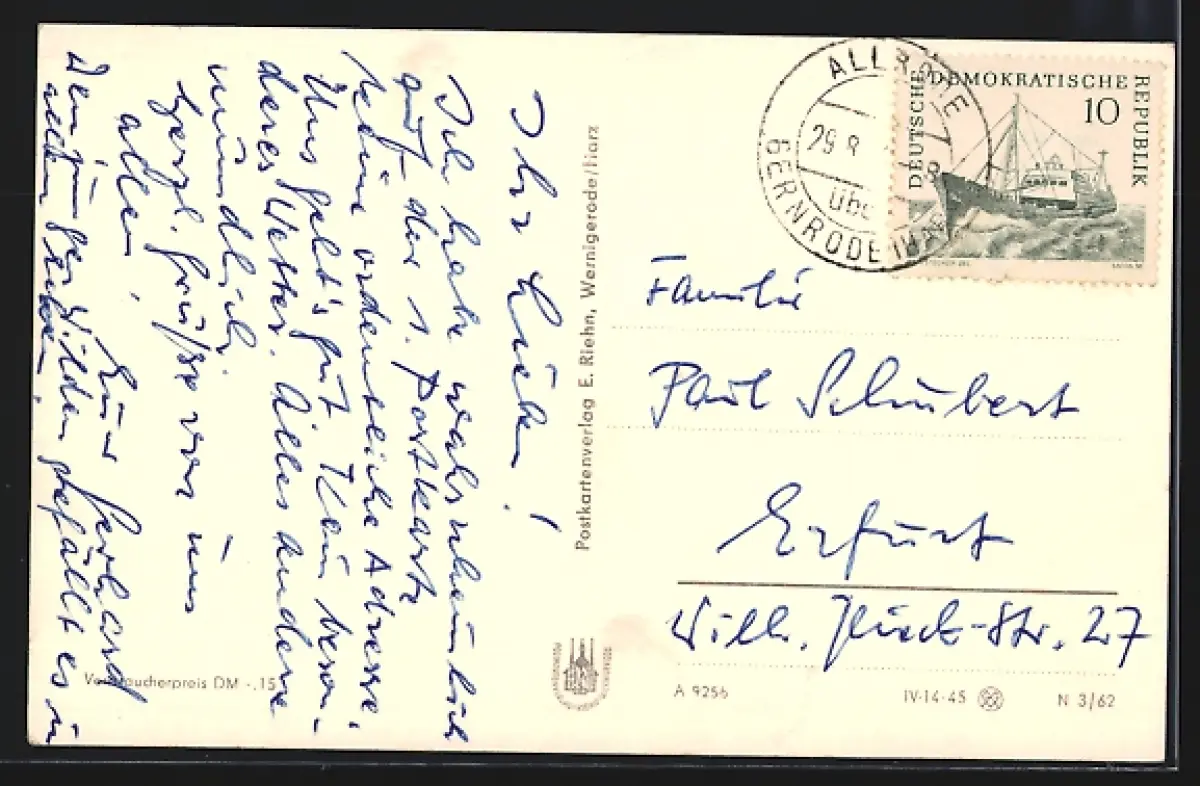 Ihr Lieben!
Ich habe wahrscheinlich
auf der 1. Postkarte
keine ordentliche Adresse.
Uns geht's gut. Kein beson-
deres Wetter. Alles andere
mündlich.
Herzl. Grüsse von uns
allen,
Euer Gerhard
Den jungen gefällt es in
allen
Postkartenverlag E. Riehn, Wernigerode/Harz
Verbraucherpreis DM -.15
ALLRODE
29.8
über
GERNRODE (HARZ)
DEUTSCHE DEMOKRATISCHE REPUBLIK
10
Familie
Paul Schubert
Erfurt
Wilh. Pieck-Str. 27
A 9256
IV-14-45
N 3/62